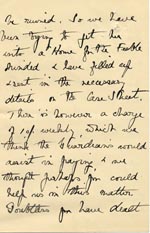 be ruined. So we have
been trying to get him
into a Home for the Feeble
Minded & have filled up
& sent in the necessary
details on the Case Sheet.
There is however a charge
of 10/- weekly, which we
think the Guardians would
assist in paying & we
thought perhaps you could
help us in this matter
Doubtless you have dealt